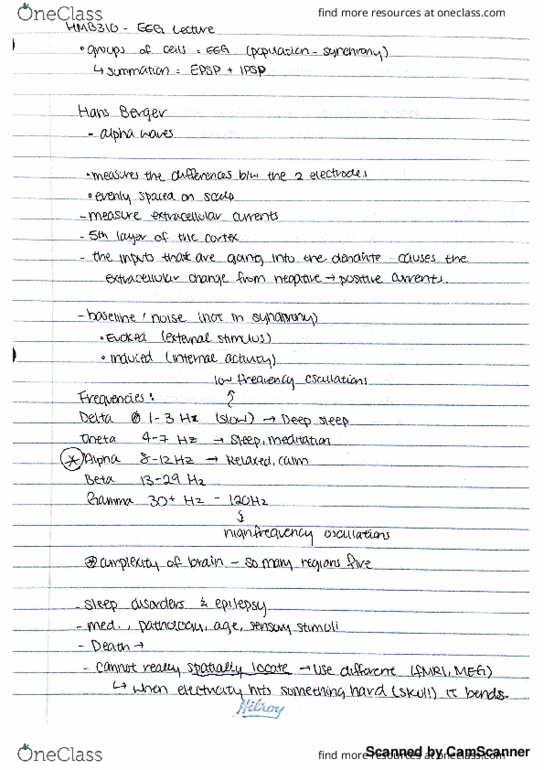 OneClass
find more resources at oneclass.com
HMB310 - EEG Lecture
• groups of cells = EEG (population - synchrony)
↳ summation = EPSP + IPSP
Hans Berger
- alpha waves
• measures the differences b/w the 2 electrodes
• evenly spaced on scalp
- measure extracellular currents
- 5th layer of the cortex
- the inputs that are going into the dendrite causes the
extracellular change from negative → positive currents.
- baseline / noise (not in synchrony)
• Evoked (external stimulus)
• Induced (internal activity)
low frequency oscillations
Frequencies:
Delta 1-3 Hz (slow) → Deep sleep
Theta 4-7 Hz → Sleep, meditation
Alpha 8-12 Hz → Relaxed, calm
Beta 13-29 Hz
Gamma 30+ Hz - 120Hz
high frequency oscillations
complexity of brain - so many regions fire
- sleep disorders & epilepsy
- med., pathology, age, sensory stimuli
- Death →
- cannot really spatially locate → use different (fMRI, MEG)
↳ when electricity hits something hard (skull) it bends.
Hilroy
OneClass
find more resources at oneclass.com
Scanned by CamScanner